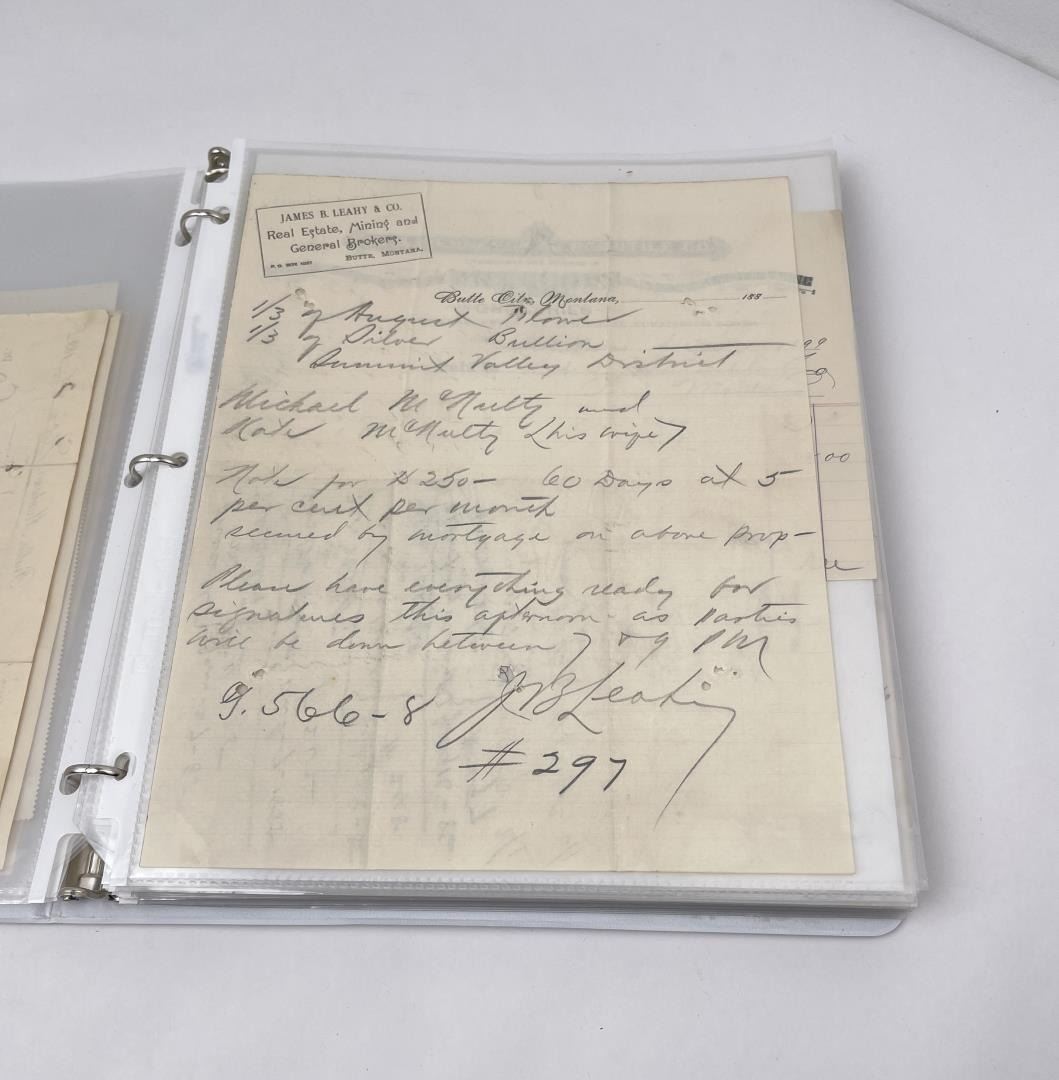 JAMES B. LEAHY & CO.
Real Estate, Mining and
General Brokers.
BUTTE, MONTANA.
Butte City, Montana, 188
1/3 of August Flower
1/3 of Silver Bullion
Summit Valley District
Michael McNulty and
Kate McNulty (his wife)
Note for $250- 60 Days at 5
per cent per month
secured by mortgage on above prop-
Please have everything ready for
signatures this afternoon as parties
will be down between 7 & 9 PM
J B Leahy
G. 566-8
# 297